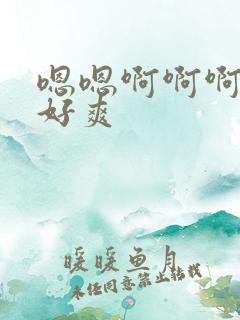 嗯嗯啊啊啊
好爽
暖暖鱼月
未经同意禁止转载